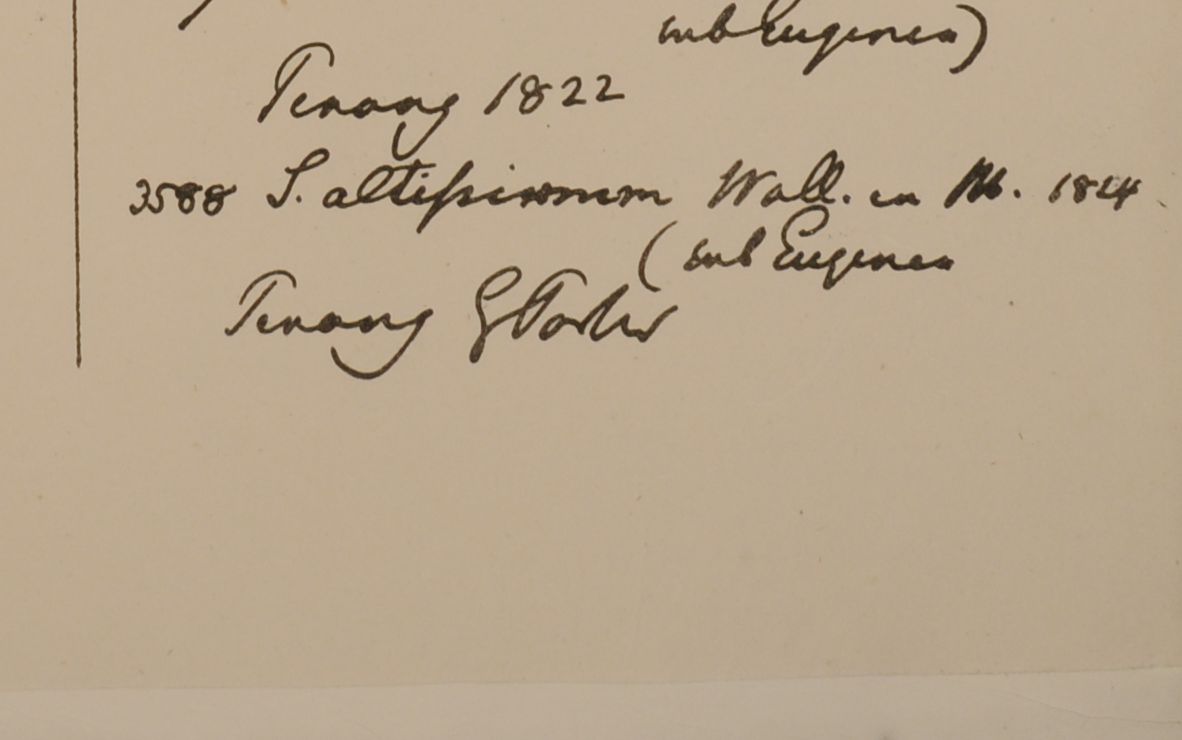 sub Eugenia)
Penang 1822
3588 S. altissimum Wall. in M. 1824
(sub Eugenia
Penang G Porter